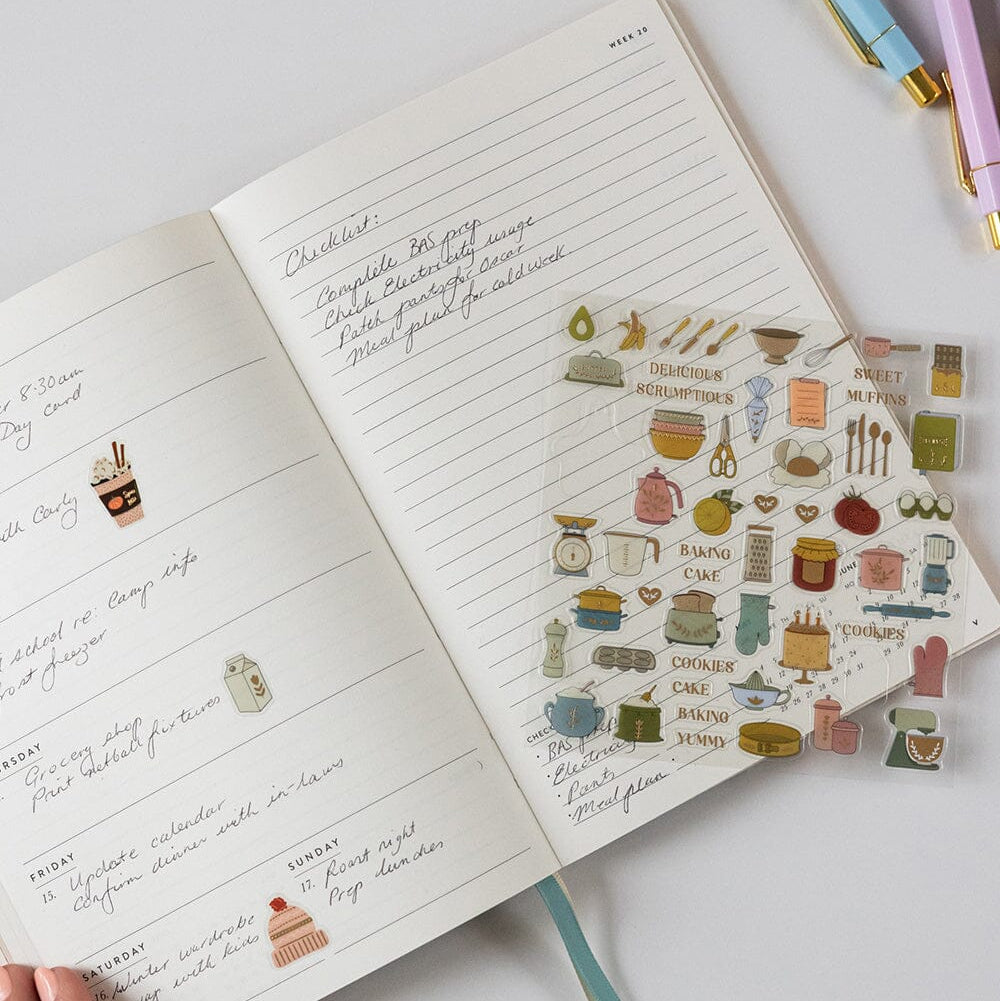 8:30am
Day card
with Carly
school re: Camp info
freezer
Grocery shop
Print netball fixtures
FRIDAY
15. Update calendar
Confirm dinner with in-laws
SATURDAY
16. Winter wardrobe
with kids
SUNDAY
17. Roast night
Prep lunches
WEEK 20
Checklist:
Complete BAS prep
Check Electricity usage
Patch pants for Oscar
Meal plan for cold week
DELICIOUS
SCRUMPTIOUS
SWEET
MUFFINS
BAKING
CAKE
COOKIES
COOKIES
CAKE
BAKING
YUMMY
JUNE
· BAS prep
· Electricity
· Pants
· Meal plan